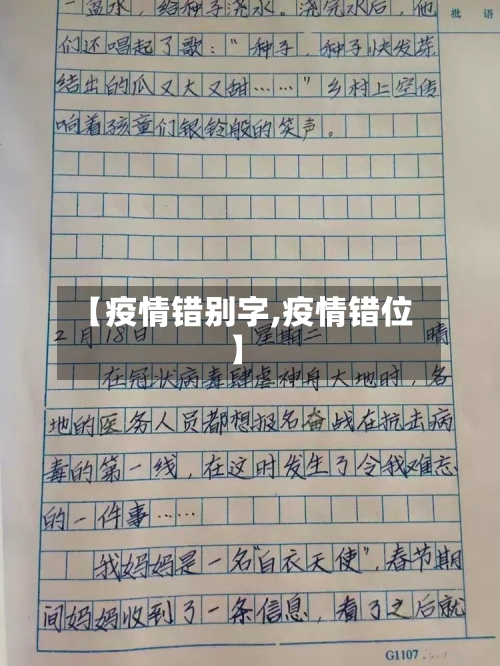 一盆水，给种子浇水。浇完水后，他
批 语
们还唱起了歌：“种子，种子快发芽
结出的瓜又大又甜……”乡村上空传
响着孩童们银铃般的笑声。
【疫情错别字,疫情错位
】
2月18日 星期二 晴
在冠状病毒肆虐神舟大地时，各
地的医务人员都想报名奋战在抗击病
毒的第一线，在这时发生了令我难忘
的一件事……
我妈妈是一名“白衣天使”，春节期
间妈妈收到了一条信息，看了之后就
G1107